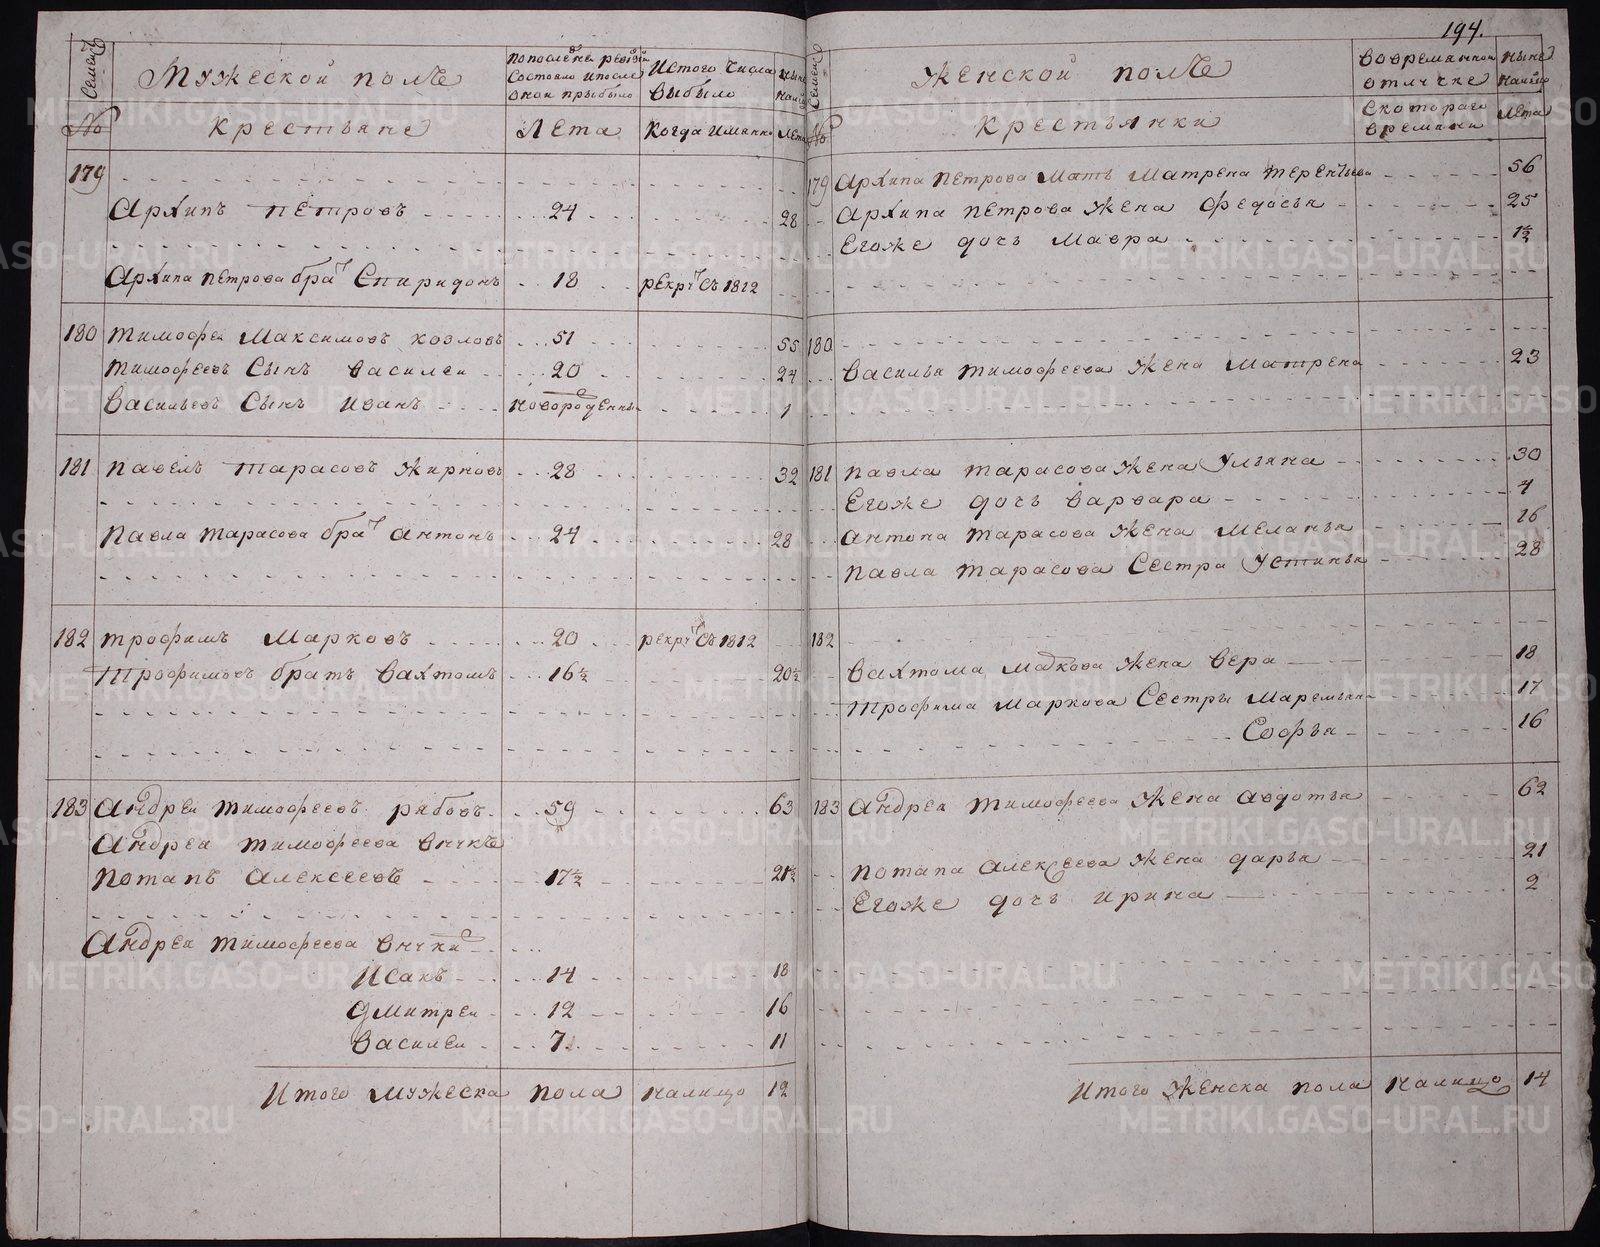 194.
Семей
№
Мужеской полъ
По последней ревизии состояло и после оной прыбыло
Ис того числа выбыло
ныне налицо
Крестьяне
Лета
Когда имянно
Лета
179
Архипъ Петровъ 24 28
Архипа Петрова братъ Спиридонъ 18 рекрут съ 1812
180 Тимофеи Максимовъ Козловъ 51 55
Тимофеевъ сынъ Василеи 20 24
Васильевъ сынъ Иванъ новорожденны 1
181 Павелъ Тарасовъ Жирновъ 28 32
Павла Тарасова братъ Антонъ 24 28
182 Трофимъ Марковъ 20 рекрут съ 1812
Трофимовъ братъ Вахтомъ 16½ 20½
183 Андреи Тимофеевъ Рябовъ 59 63
Андрея Тимофеева внукъ
Потапъ Алексеевъ 17½ 21½
Андрея Тимофеева внуки
Исакъ 14 18
Дмитреи 12 16
Василеи 7 11
Итого мужеска пола налицо 12
Семей
№
Женской полъ
Во временной отлучке
ныне налицо
Крестьянки
С котораго времяни
Лета
179 Архипа Петрова мать Матрена Терентьева 56
Архипа Петрова жена Федосья 25
Егоже дочь Мавра 1½
180
Василья Тимофеева жена Матрена 23
181 Павла Тарасова жена Ульяна 30
Егоже дочь Варвара 4
Антона Тарасова жена Меланья 26
Павла Тарасова сестра Устинья 28
182
Вахтома Маркова жена Вера 18
Трофима Маркова сестры Маремьяна 17
Софья 16
183 Андрея Тимофеева жена Авдотья 62
Потапа Алексеева жена Дарья 21
Егоже дочь Ирина 2
Итого женска пола налицо 14
METRIKI.GASO-URAL.RU